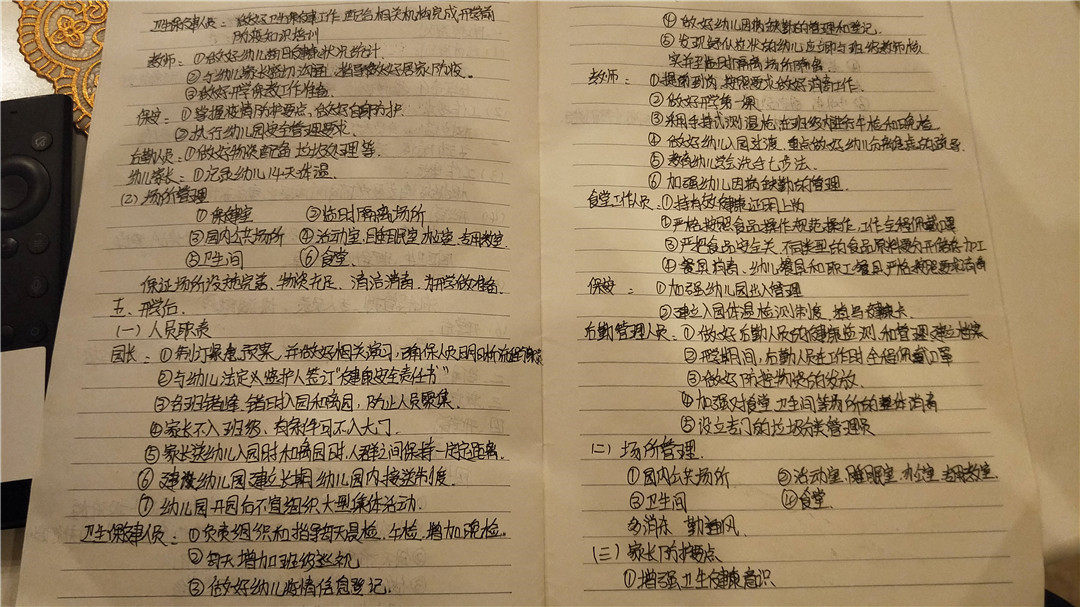 卫生保健人员：做好卫生保健工作 配合相关机构完成开学前
防疫知识培训
教师：①做好幼儿每日健康状况统计.
②与幼儿家长密切沟通，指导做好居家防疫。
③做好开学保教工作准备.
保安：①掌握疫情防护要点，做好自身防护
②执行幼儿园安全管理要求.
后勤人员：①做好物资配备 垃圾处理等.
幼儿家长：①记录幼儿14天体温.
(2) 场所管理
①保健室 ②临时隔离场所
③园内公共场所 ④活动室、睡眠室、办公室、专用教室.
⑤卫生间 ⑥食堂.
保证场所设施完善、物资充足、清洁消毒，为开学做准备.
五、开学后.
(一) 人员职责
园长：①制订应急预案，并做好相关演习，确保人员明晰流程
②与幼儿法定义监护人签订“健康安全责任书”
③各班错峰、错时入园和离园，防止人员聚集.
④家长不入班级、有条件可不入大门.
⑤家长送幼儿入园时和离园时，人群之间保持一定距离.
⑥建议幼儿园建立长期幼儿园内接送制度.
⑦幼儿园开园后不宜组织大型集体活动.
卫生保健人员：①负责组织和指导每天晨检、午检，增加晚检。
②每天增加班级巡视
③做好幼儿疫情信息登记.
④做好幼儿因病缺勤的管理和登记.
⑤发现疑似症状的幼儿应立即与班级教师核
实并至临时隔离场所隔离.
教师：①提前到岗，按照要求做好消毒工作.
②做好开学第一课
③采用手持式测温枪，在班级增进行午检和晚检.
④做好幼儿入园过渡，重点做好幼儿负性情绪的疏导.
⑤教会幼儿学会洗手七步法.
⑥加强幼儿因病缺勤的管理.
食堂工作人员：①持有效健康证明上岗
②严格按照食品操作规范操作，工作全程佩戴口罩
③严把食品安全关、不同类型的食品原料要分开储存、加工
④餐具消毒、幼儿餐具和职工餐具严格按照要求消毒
保安：①加强幼儿园出入管理
②建立入园体温检测制度，
后勤管理人员：①做好后勤人员的健康监测和管理，建立档案
②开学期间，后勤人员在工作时全程佩戴口罩
③做好防控物资的发放.
④加强对食堂、卫生间等场所的整体消毒
⑤设立专门的垃圾分类管理员
(二) 场所管理.
①园内公共场所 ②活动室、睡眠室、办公室、专用教室.
③卫生间 ④食堂.
多消毒 勤通风.
(三) 家长防护要点
①增强卫生健康意识